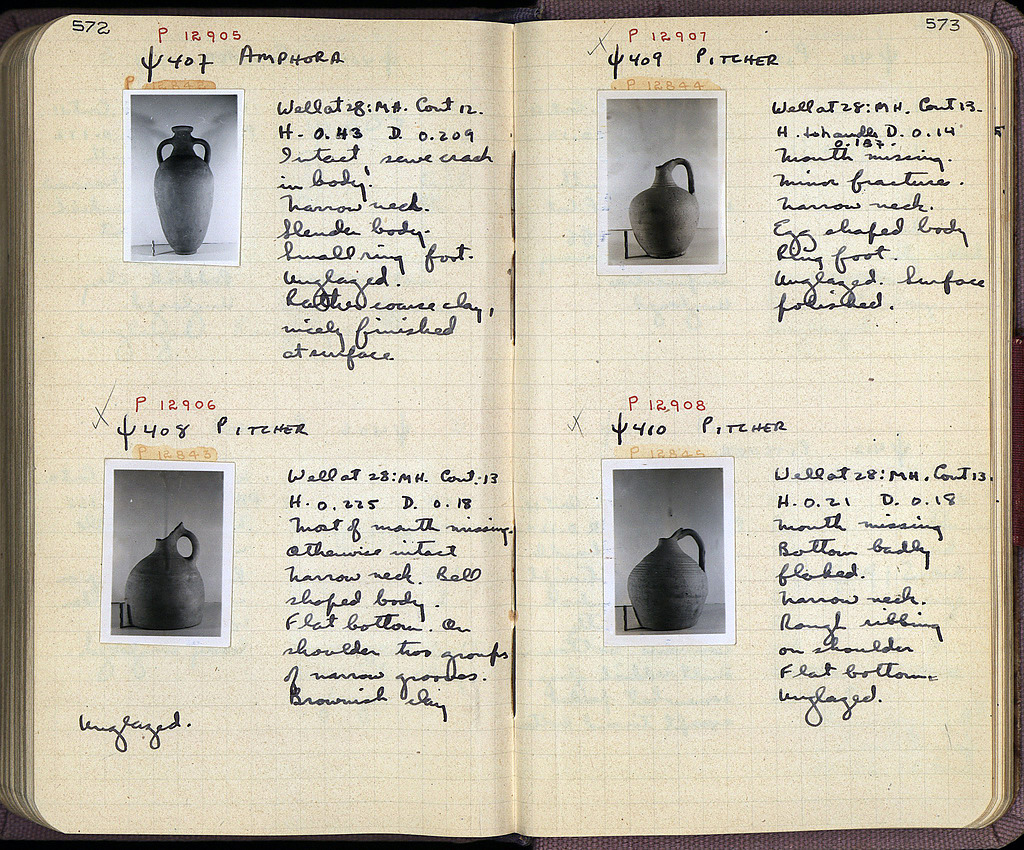 572
P 12905
ψ407 AMPHORA
P 12842
Well at 28:MH. Cont 12.
H. 0.43 D. 0.209
Intact, save crack
in body.
Narrow neck.
Slender body.
Small ring foot.
Unglazed.
Rather coarse clay,
nicely finished
at surface
P 12906
ψ408 PITCHER
P 12843
Well at 28:MH. Cont. 13
H. 0.225 D. 0.18
Most of mouth missing.
Otherwise intact
Narrow neck. Bell
shaped body.
Flat bottom. On
shoulder two groups
of narrow grooves.
Brownish clay
Unglazed.
573
P 12907
ψ409 PITCHER
P 12844
Well at 28:MH. Cont 13.
H. to handle D. 0.14
0.187.
Mouth missing.
Minor fracture.
Narrow neck.
Egg shaped body
Ring foot.
Unglazed. Surface
polished.
P 12908
ψ410 PITCHER
P 12845
Well at 28:MH. Cont 13.
H. 0.21 D. 0.18
Mouth missing
Bottom badly
flaked.
Narrow neck.
Rough ribbing
on shoulder
Flat bottom.
Unglazed.